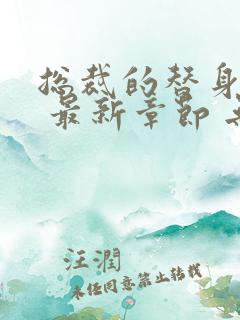 总裁的替身
最新章节
汪润
未经同意禁止转载